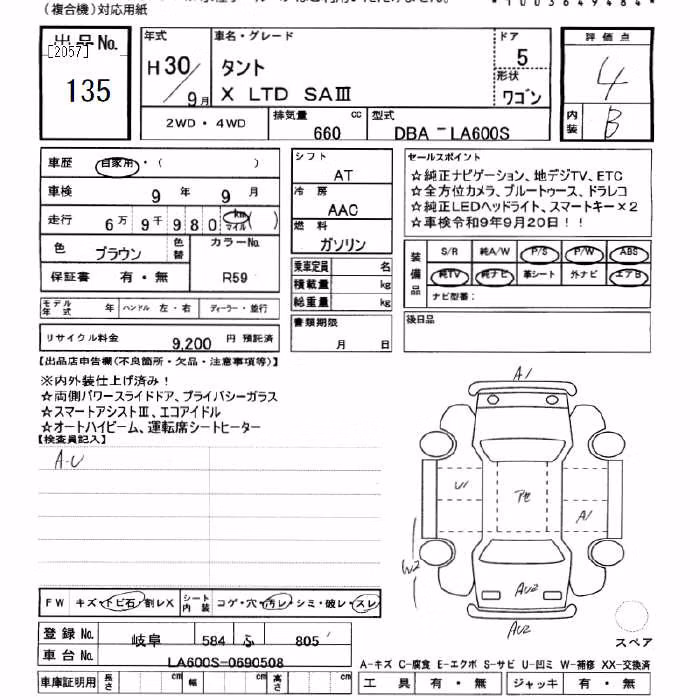 (複合機)対応用紙
出品No.
[2057]
135
年式
H30/9月
車名・グレード
タント
X LTD SAⅢ
ドア
5
形状
ワゴン
評価点
4
内装
B
2WD・4WD
排気量 660 cc
型式 DBA-LA600S
車歴 自家用・( )
車検 9年 9月
走行 6万9千980 km マイル ( )
色 ブラウン 色替 カラーNo.
保証書 有・無 R59
モデル年式 年 ハンドル 左・右 ディーラー・並行
リサイクル料金 9,200 円 預託済
シフト
AT
冷房
AAC
燃料
ガソリン
乗車定員 名
積載量 kg
総重量 kg
書類期限
月 日
セールスポイント
☆純正ナビゲーション、地デジTV、ETC
☆全方位カメラ、ブルートゥース、ドラレコ
☆純正LEDヘッドライト、スマートキー×2
☆車検令和9年9月20日!!
装備品
S/R 純A/W P/S P/W ABS
純TV 純ナビ 革シート 外ナビ エアB
ナビ型番:
後日品
【出品店申告欄(不良箇所・欠品・注意事項等)】
※内外装仕上げ済み!
☆両側パワースライドドア、プライバシーガラス
☆スマートアシストⅢ、エコアイドル
☆オートハイビーム、運転席シートヒーター
【検査員記入】
A-U
A1
U1
A1
W2
AU2
AU2
スペア
FW キズ・トビ石・割レX シート内装 コゲ・穴・汚レ・シミ・破レ・スレ
登録No. 岐阜 584 ふ 805
車台No. LA600S-0690508
車庫証明用 長さ cm 幅 cm 高さ cm
A-キズ C-腐食 E-エクボ S-サビ U-凹ミ W-補修 XX-交換済
工具 有・無 ジャッキ 有・無